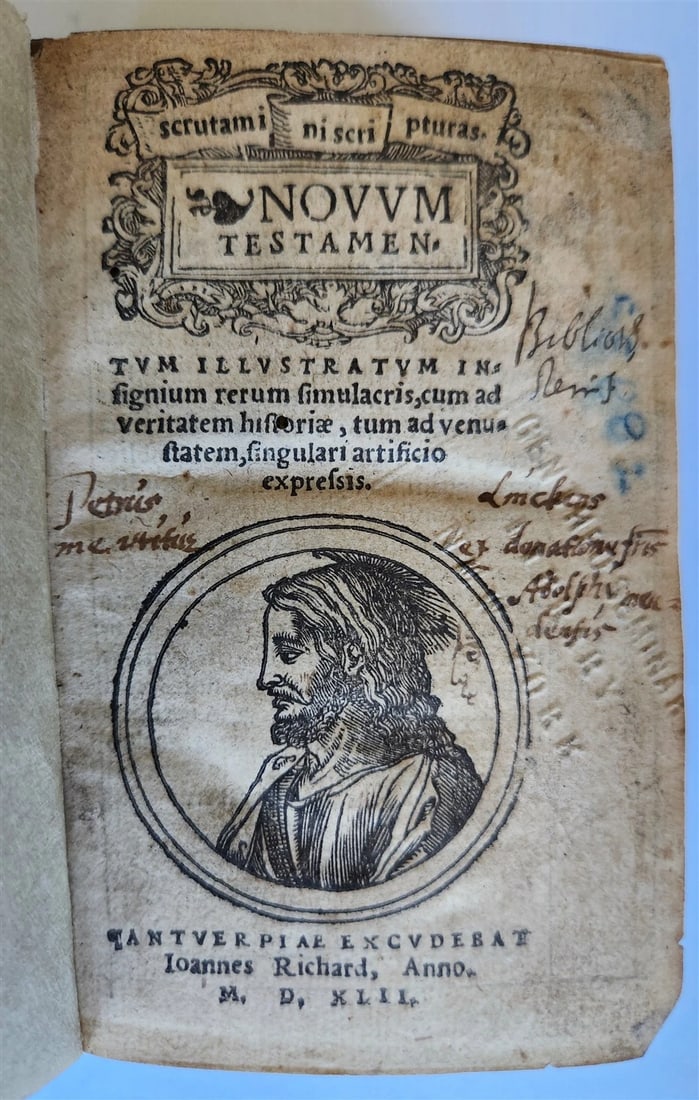 scrutami ni scri pturas.
NOVVM
TESTAMEN.
TVM ILLVSTRATVM IN-
signium rerum simulacris, cum ad
veritatem historiæ, tum ad venu-
statem, singulari artificio
expressis.
Petrus
me utitur
ex donatione fris
Adolphi
¶ANTVERPIAE EXCVDEBAT
Ioannes Richard, Anno.
M. D. XLII.